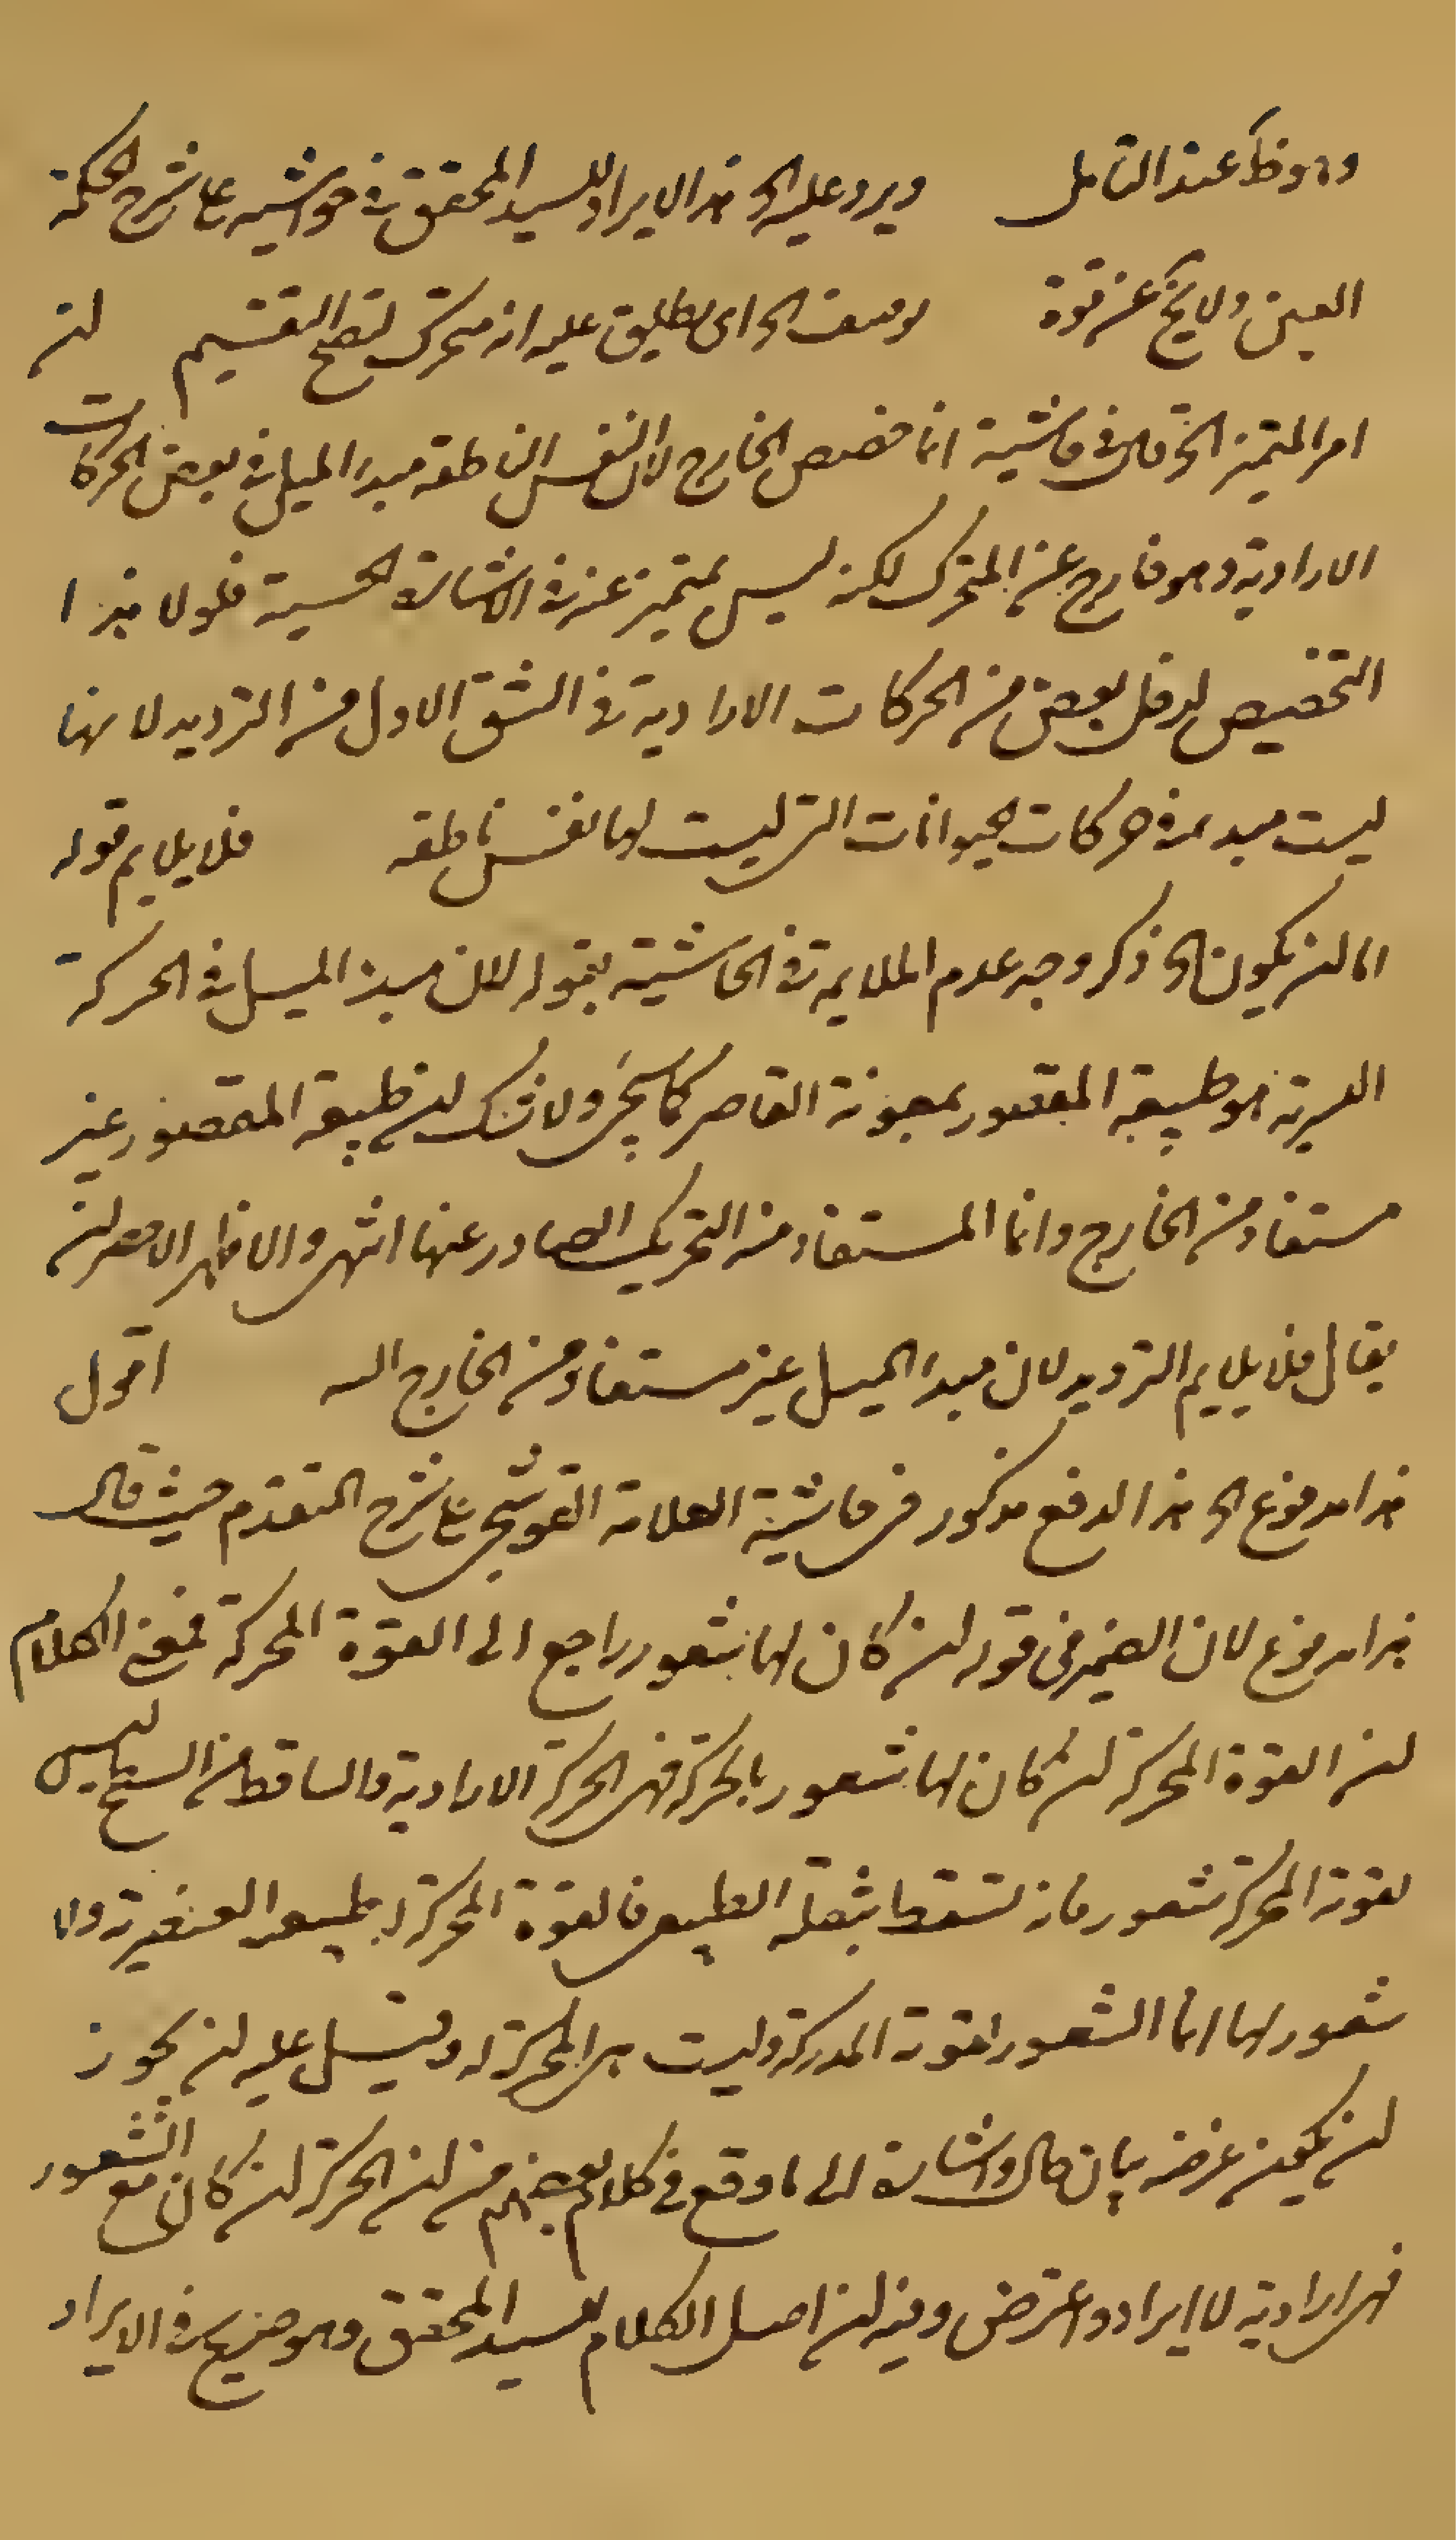 وهو ظ عند التامل ويرد عليه الخ هذا الايراد للسيد المحقق في حواشيه على شرح الحكمة
العين ولا يخ عن قوة يوصف الخ اى يطلق عليه انه متحرك ليصح التقسيم لنـ
امر المتميز الخ قال في حاشية انما خصص الخارج لان النفس الناطقه مبدا الميل في بعض الحركات
الارادية وهو خارج عن المتحرك لكنه ليس بمتميز عنه في الاشارة الحسية فلولا هذا
التخصيص لدخل بعض من الحركات الارادية في الشق الاول من الترديد لانها
ليست مبدءا في حركات الحيوانات التى ليست لها نفس ناطقه فلا يلايم قوله
اما ان يكون الخ ذكر وجه عدم الملايمة في الحاشية بقوله لان مبدا الميل في الحركة
القسرية هو طبيعة المقسور بمعونة القاصر كما سيجئ ولا شك ان طبيعة المقصور غير
مستفاد من الخارج وانما المستفاد منه التحريك الصادر عنها انتهى والاظهر الاخصر ان
يقال فلا يلايم الترديد لان مبدا الميل غير مستفاد من الخارج اقول
هذا مدفوع الخ هذا الدفع مذكور في حاشية العلامة القوشجى على شرح المتقدم حيث قال
هذا مدفوع لان الضمير في قوله ان كان لها شعور راجع الى القوة المحركة فمعنى الكلام
ان القوة المحركة ان كان لها شعور بالحركة فهى الحركة الارادية والساقط من السطح ليس
لقوته المحركة شعور فانه تسقط بثقله الطبيعى فالقوة المحركة له طبيعه العنصرية ولا
شعور لها انما الشعور لقوته المدركة وليست هى المحركة له وقيل عليه ان يجوز
ان يكون غرضه بيان حال واشارة الى ما وقع في كلام بعضهم من ان الحركة ان كان مع الشعور
فهى ارادية لا ايراد واعترض وفيه ان اصل الكلام للسيد المحقق وهو صريح في الايراد